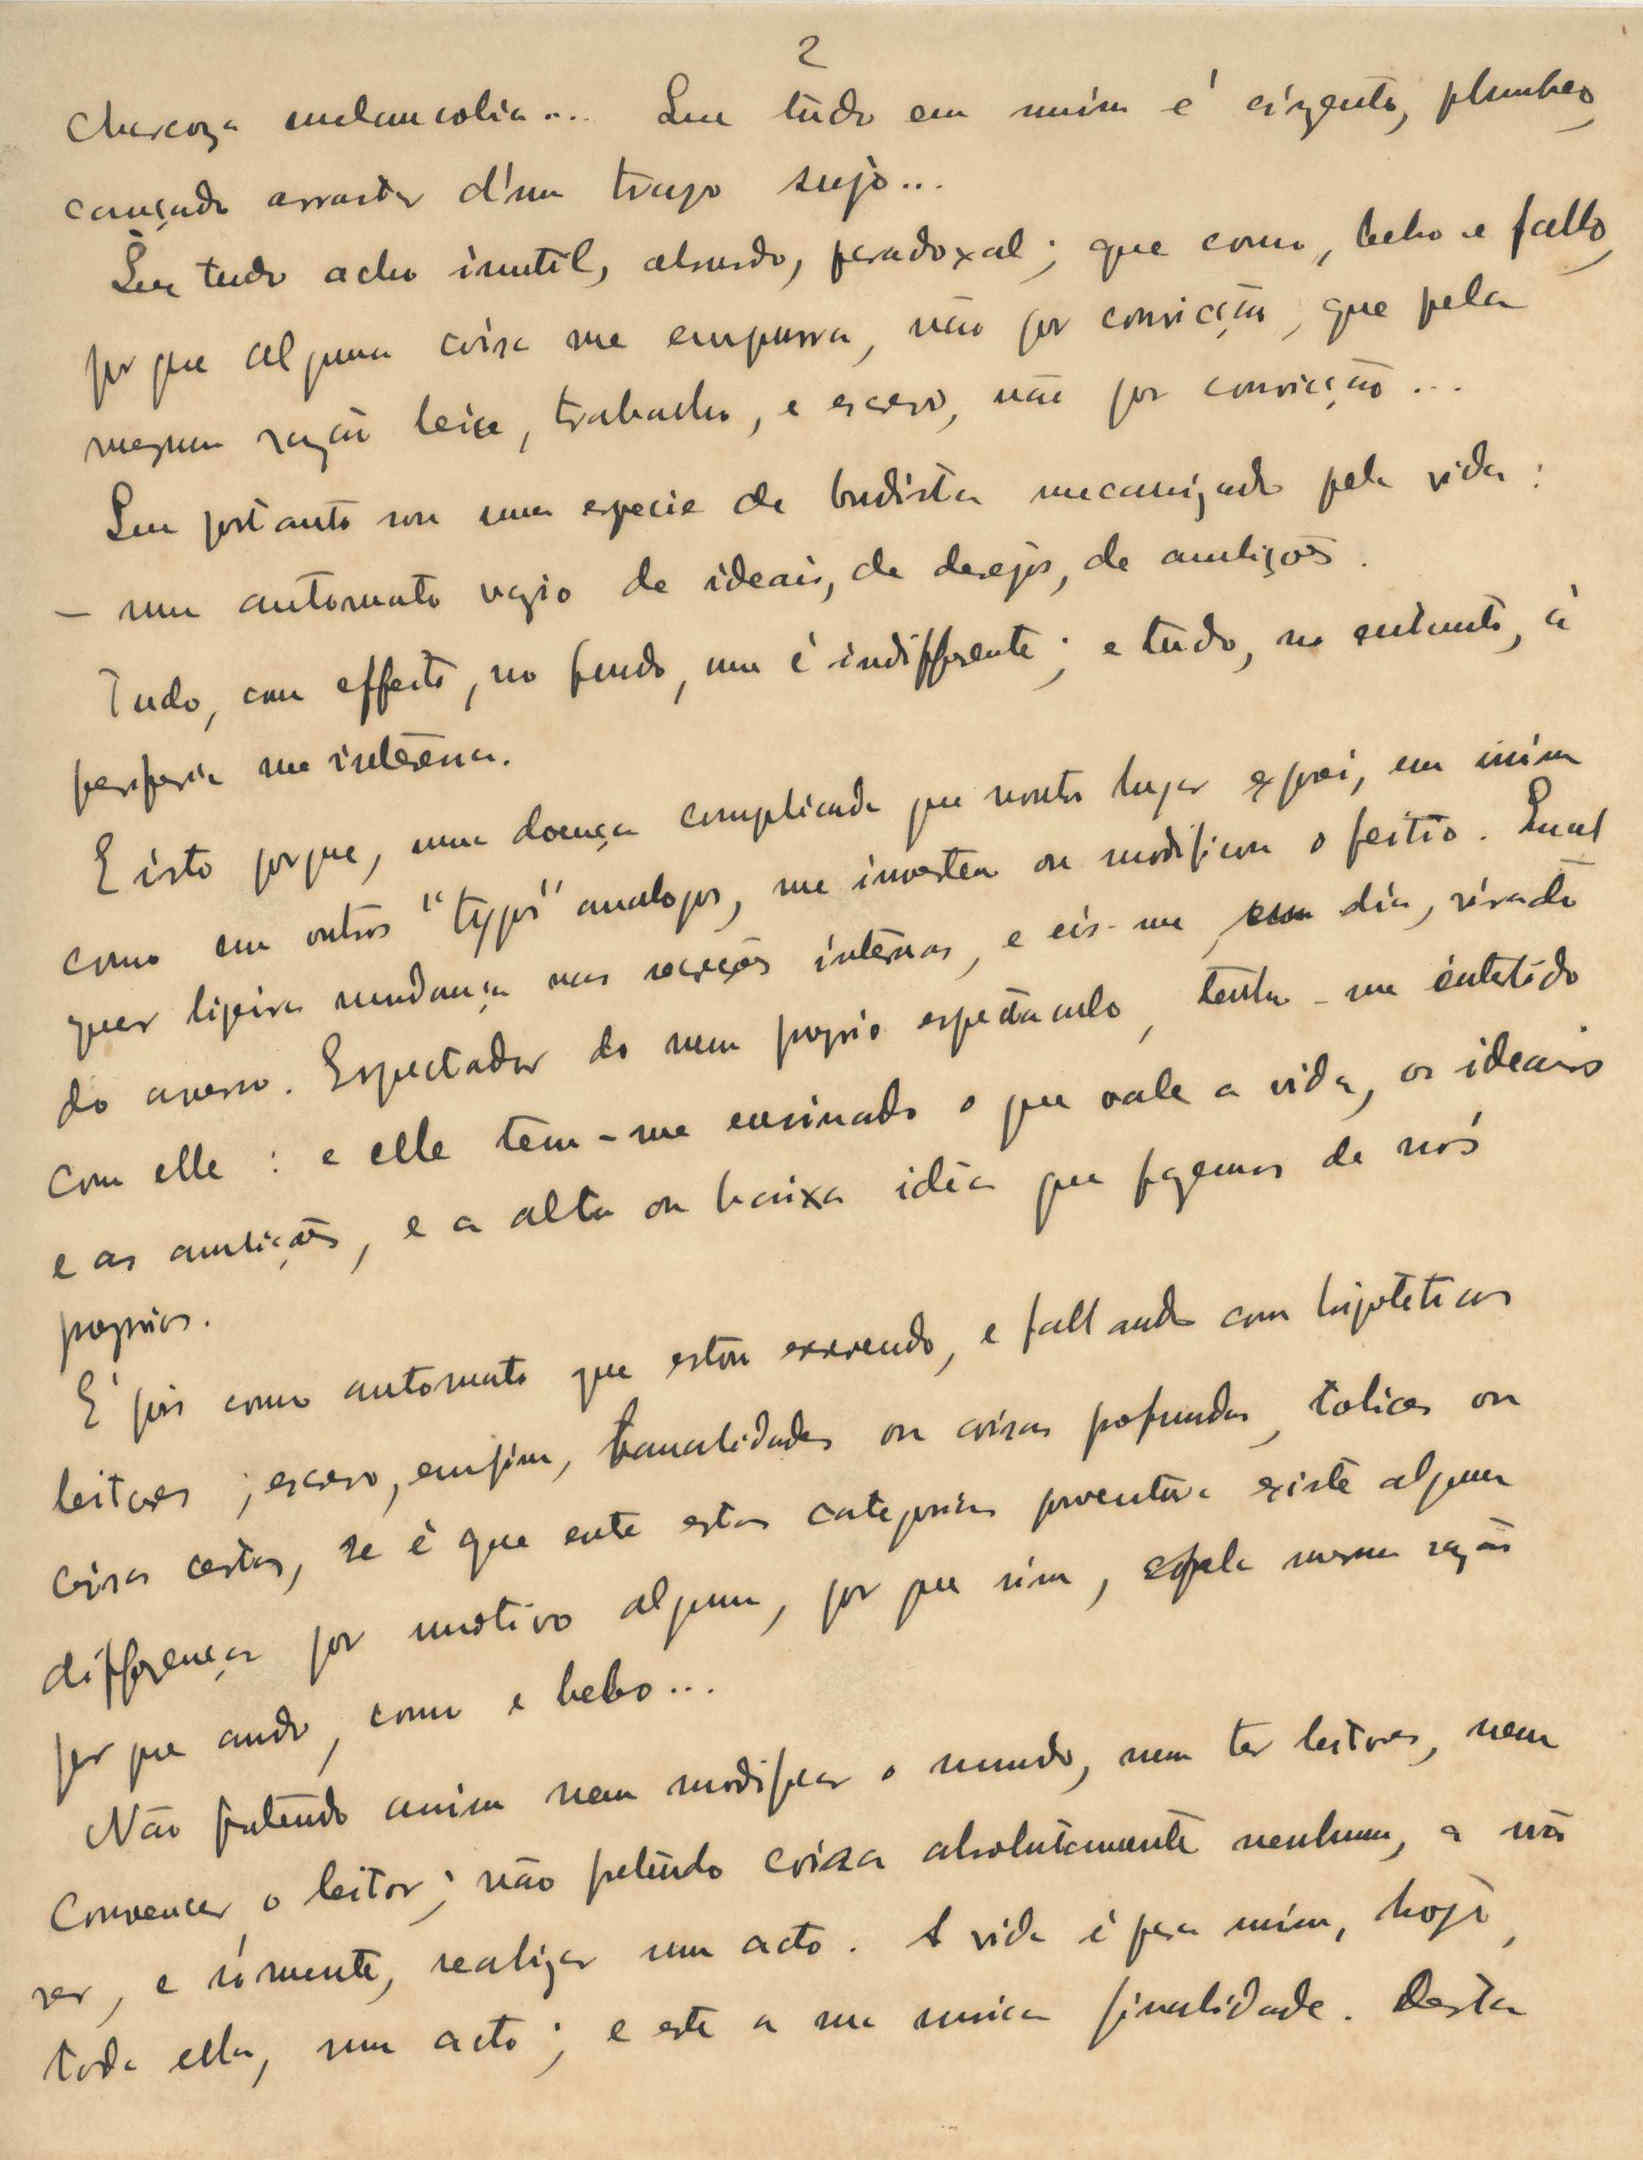 2
melancolia... Que tudo em mim é cizento, plumbeo,
cançado arrastar d'um trapo sujo...
Que tudo acho inutil, absurdo, paradoxal; que como, bebo e fallo,
por que alguma coisa me empurra, não por convicção, que pela
mesma razão leio, trabalho, e escrevo, não por convicção...
Que portanto sou uma especie de budista mecanizado pela vida:
— um automato vazio de ideais, de desejos, de ambições.
Tudo, com effeito, no fundo, me é indifferente; e tudo, no entanto, á
periferia me interessa.
E isto porque, uma doença complicada que noutro lugar expuz, em mim
como em outros "typos" analogos, me inverteu ou modificou o feitio. Qual
quer ligeira mudança nas secreções internas, e eis-me, um dia, virado
do avesso. Espectador do meu proprio espectaculo, tenho-me entretido
com elle: e elle tem-me ensinado o que vale a vida, os ideais
e as ambições, e a alta ou baixa idéa que fazemos de nós
proprios.
É pois como automato que estou escrevendo, e fallando com hipoteticos
leitores; escrevo, emfim, banalidades ou coisas profundas, tolices ou
coisas certas, se é que entre estas categorias porventura existe alguma
differença por motivo algum, por que sim, e pela mesma razão
por que ando, como e bebo...
Não pretendo assim nem modificar o mundo, nem ter leitores, nem
convencer o leitor; não pretendo coisa absolutamente nenhuma, a não
ser, e sómente, realizar um acto. A vida é para mim, hoje,
toda ella, um acto; e este a sua unica finalidade. Desta